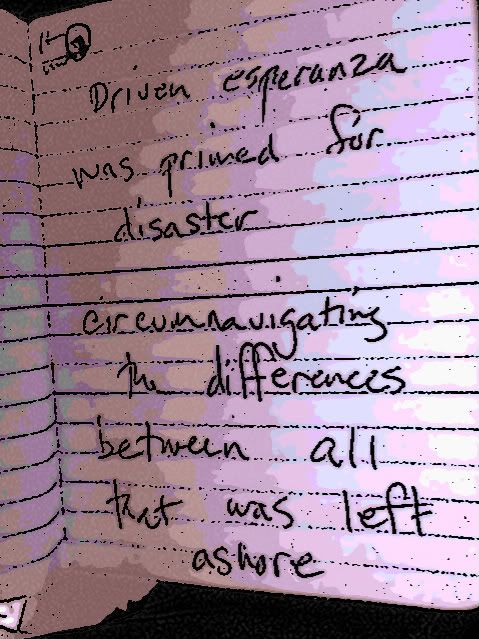 Driven esperanza
was primed for
disaster
circumnavigating
the differences
between all
that was left
ashore